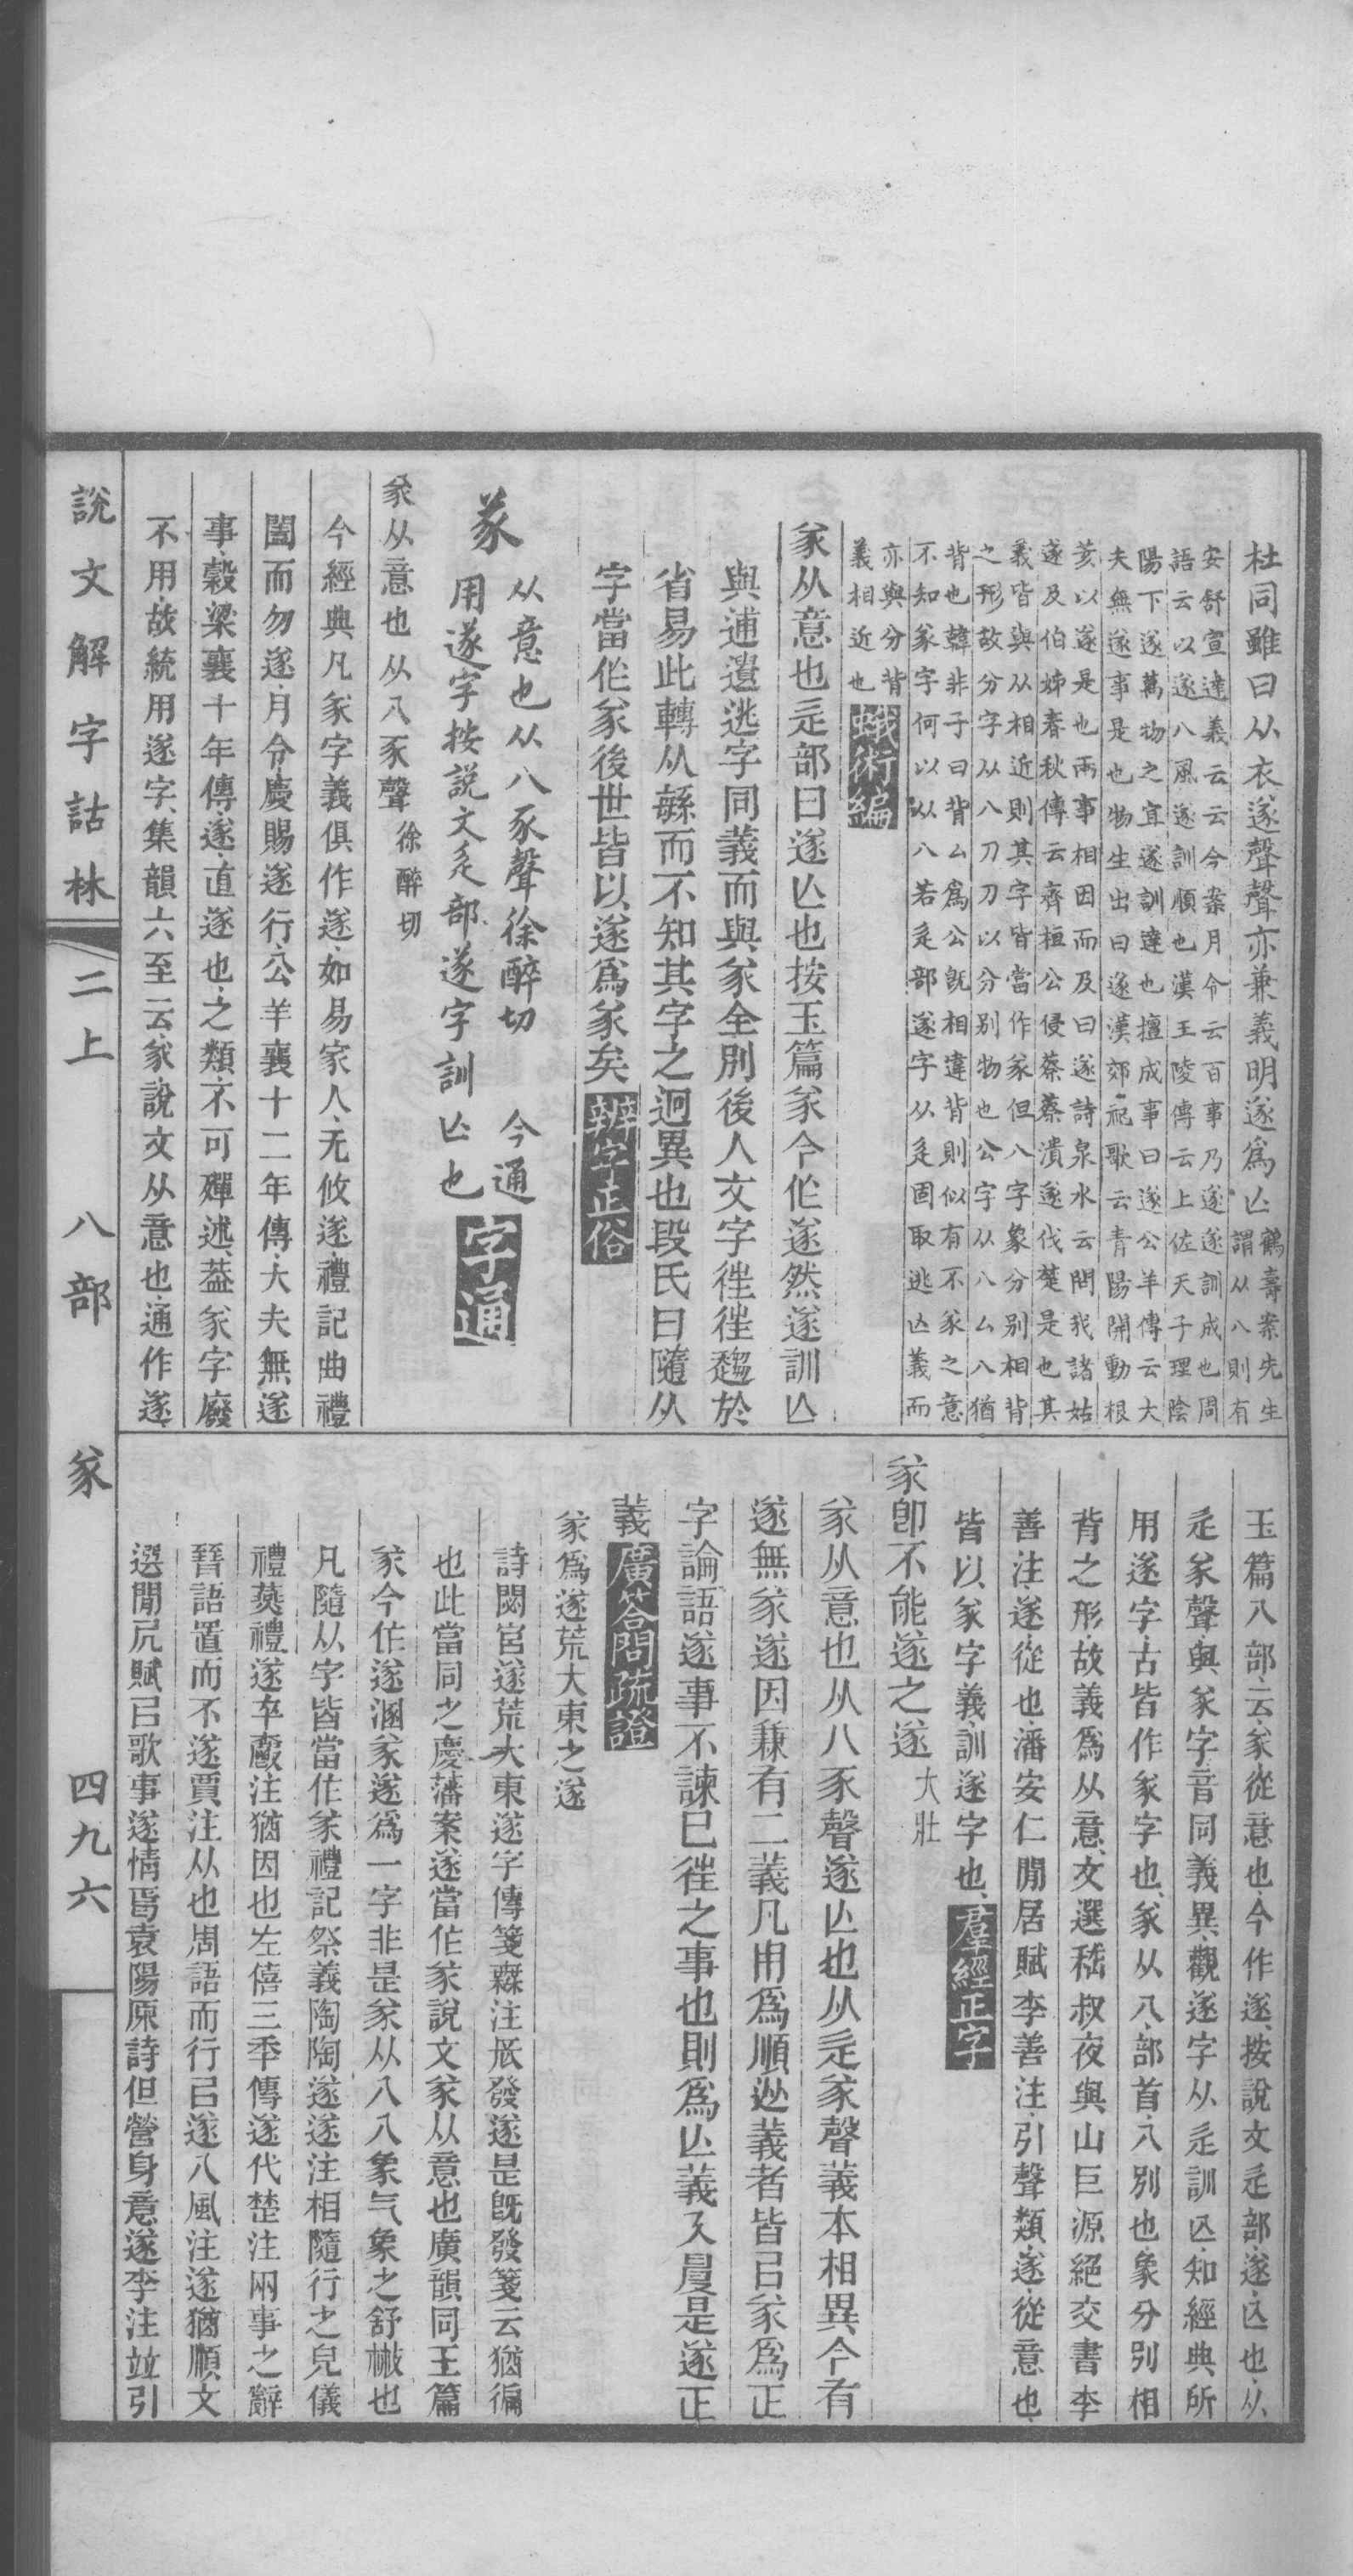 杜同雖曰从衣遂聲聲亦兼義明遂爲亾鶴壽案先生
謂从八則有
安舒宣達義云云今案月令云百事乃遂遂訓成也周
語云以遂八風遂訓順也漢王陵傳云上佐天子理陰
陽下遂萬物之宜遂訓達也擅成事曰遂公羊傳云大
夫無遂事是也物生出曰遂漢郊祀歌云青陽開動根
荄以遂是也兩事相因而及曰遂詩泉水云問我諸姑
遂及伯姊春秋傳云齊桓公侵蔡蔡潰遂伐楚是也其
義皆與从相近則其字皆當作㒸但八字象分別相背
之形故分字从八刀刀以分別物也公字从八厶八猶
背也韓非子曰背厶爲公旣相違背則似有不㒸之意
不知㒸字何以从八若辵部遂字从辵固取逃亾義而
亦與分背
義相近也蛾術編
㒸从意也辵部曰遂亾也按玉篇㒸今作遂然遂訓亾
與逋遺逃字同義而與㒸全別後人文字徃徃趨於
省易此轉从緐而不知其字之迥異也段氏曰隨从
字當作㒸後世皆以遂爲㒸矣辨字正俗
㒸
从意也从八豕聲徐醉切　今通
用遂字按説文辵部遂字訓亾也字通
㒸从意也从八豕聲徐醉切
今經典凡㒸字義俱作遂如易家人无攸遂禮記曲禮
闔而勿遂月令慶賜遂行公羊襄十二年傳大夫無遂
事穀梁襄十年傳遂直遂也之類不可殫述葢㒸字廢
不用故統用遂字集韻六至云㒸說文从意也通作遂
玉篇八部云㒸從意也今作遂按說文辵部遂亾也从
辵㒸聲與㒸字音同義異觀遂字从辵訓亾知經典所
用遂字古皆作㒸字也㒸从八部首八別也象分別相
背之形故義爲从意文選嵇叔夜與山巨源絕交書李
善注遂從也潘安仁閒居賦李善注引聲類遂從意也
皆以㒸字義訓遂字也羣經正字
㒸卽不能遂之遂大壯
㒸从意也从八豕聲遂亾也从辵㒸聲義本相異今有
遂無㒸遂因兼有二義凡用爲順從義者皆㠯㒸爲正
字論語遂事不諫巳徃之事也則爲亾義又是遂正
義廣答問疏證
㒸爲遂荒大東之遂
詩閟宮遂荒大東遂字傳箋無注長發遂是旣發箋云猶徧
也此當同之慶藩案遂當作㒸說文㒸从意也廣韻同玉篇
㒸今作遂溷㒸遂爲一字非是㒸从八八象气象之舒㪔也
凡隨从字皆當作㒸禮記祭義陶陶遂遂注相隨行之皃儀
禮燕禮遂卒爵注猶因也左僖三年傳遂伐楚注兩事之辭
晉語置而不遂賈注从也周語而行㠯遂八風注遂猶順文
選閒凥賦㠯歌事遂情焉袁陽原詩但營身意遂李注竝引
說文解字詁林
二上　八部　㒸　四九六